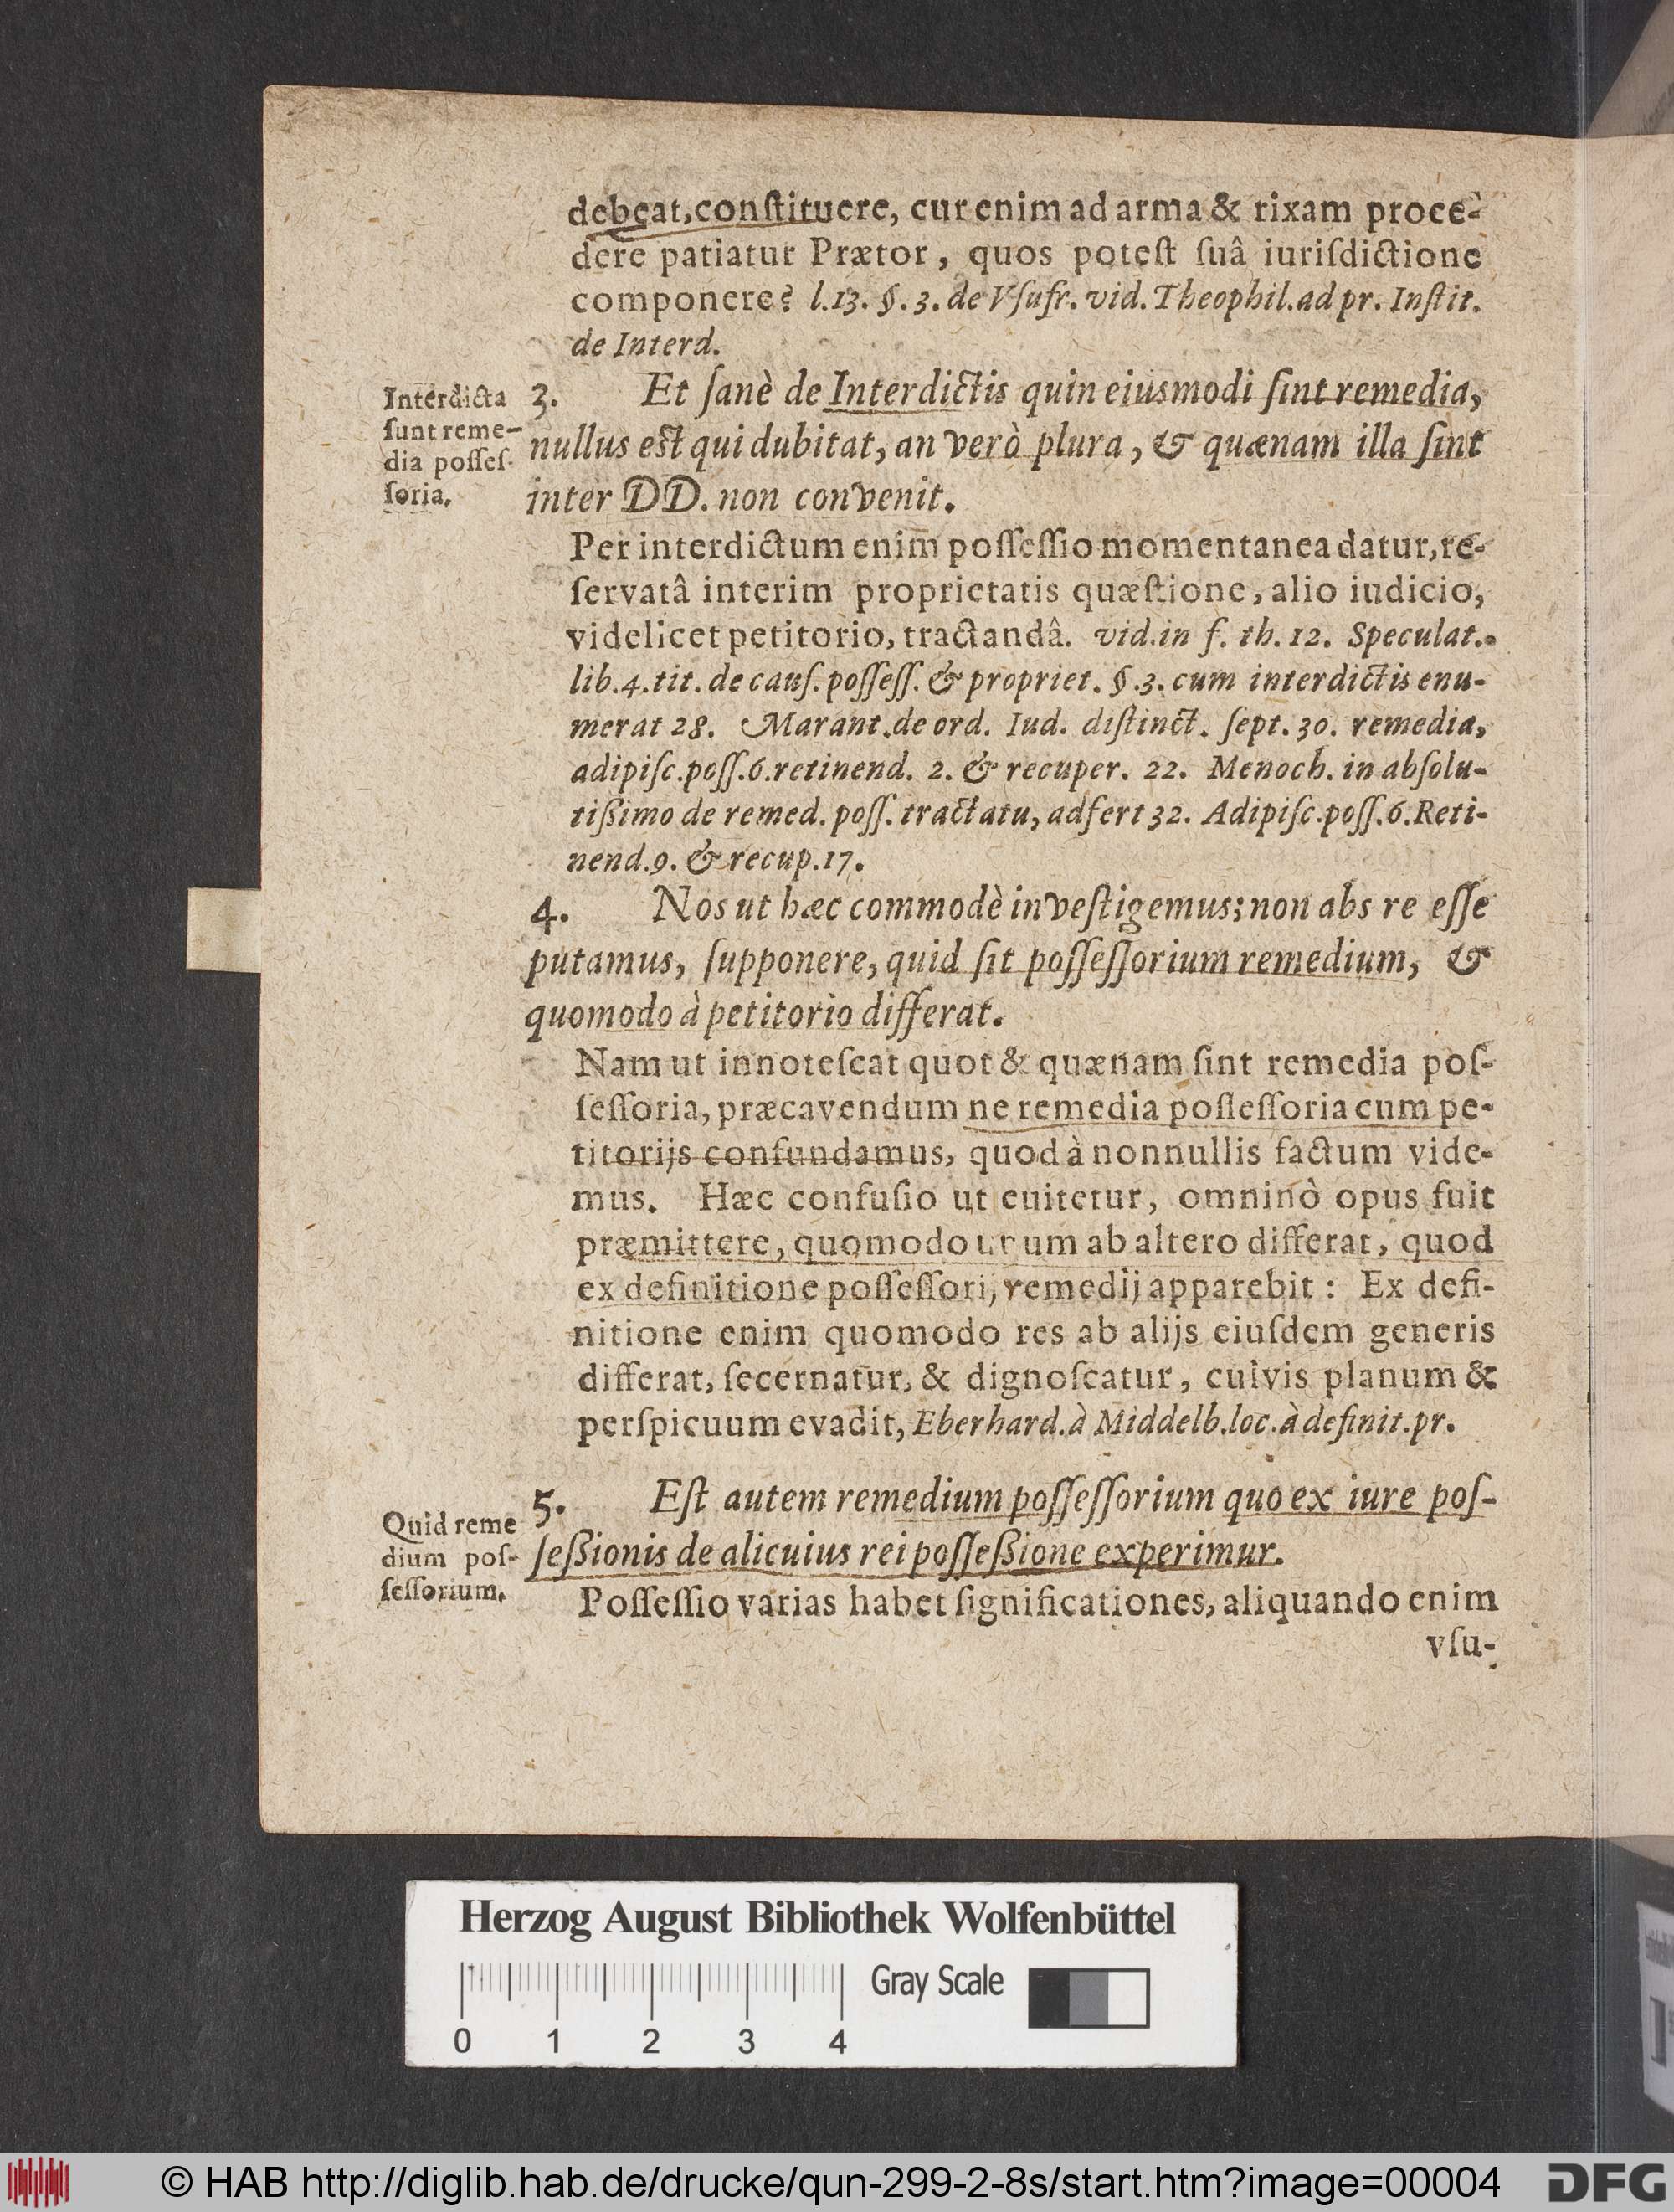 debeat, conſtituere, cur enim ad arma & rixam proce-
dere patiatur Prætor, quos poteſt ſuâ iuriſdictione
componere? l.13. §.3. de Vſufr. vid. Theophil. ad pr. Inſtit.
de Interd.
Interdicta
ſunt reme-
dia poſſeſ-
ſoria.
3. Et ſanè de Interdictis quin eiusmodi ſint remedia,
nullus eſt qui dubitat, an verò plura, & quænam illa ſint
inter DD. non convenit.
Per interdictum enim poſſeſſio momentanea datur, re-
ſervatâ interim proprietatis quæſtione, alio iudicio,
videlicet petitorio, tractandâ. vid. in f. th. 12. Speculat.
lib.4. tit. de cauſ. poſſeſſ. & propriet. §.3. cum interdictis enu-
merat 28. Marant. de ord. Iud. diſtinct. ſept. 30. remedia,
adipiſc. poſſ. 6. retinend. 2. & recuper. 22. Menoch. in abſolu-
tißimo de remed. poſſ. tractatu, adfert 32. Adipiſc. poſſ. 6. Reti-
nend. 9. & recup. 17.
4. Nos ut hæc commodè inveſtigemus; non abs re eſſe
putamus, ſupponere, quid ſit poſſeſſorium remedium, &
quomodo à petitorio differat.
Nam ut innoteſcat quot & quænam ſint remedia poſ-
ſeſſoria, præcavendum ne remedia poſſeſſoria cum pe-
titorijs confundamus, quod à nonnullis factum vide-
mus. Hæc confuſio ut euitetur, omninò opus fuit
præmittere, quomodo unum ab altero differat, quod
ex definitione poſſeſſorij remedij apparebit: Ex defi-
nitione enim quomodo res ab alijs eiuſdem generis
differat, ſecernatur, & dignoſcatur, cuivis planum &
perſpicuum evadit, Eberhard. à Middelb. loc. à definit. pr.
Quid reme
dium poſ-
ſeſſorium.
5. Eſt autem remedium poſſeſſorium quo ex iure poſ-
ſeßionis de alicuius rei poſſeßione experimur.
Poſſeſſio varias habet ſignificationes, aliquando enim
vſu-
Herzog August Bibliothek Wolfenbüttel
Gray Scale
0 1 2 3 4
© HAB http://diglib.hab.de/drucke/qun-299-2-8s/start.htm?image=00004
DFG